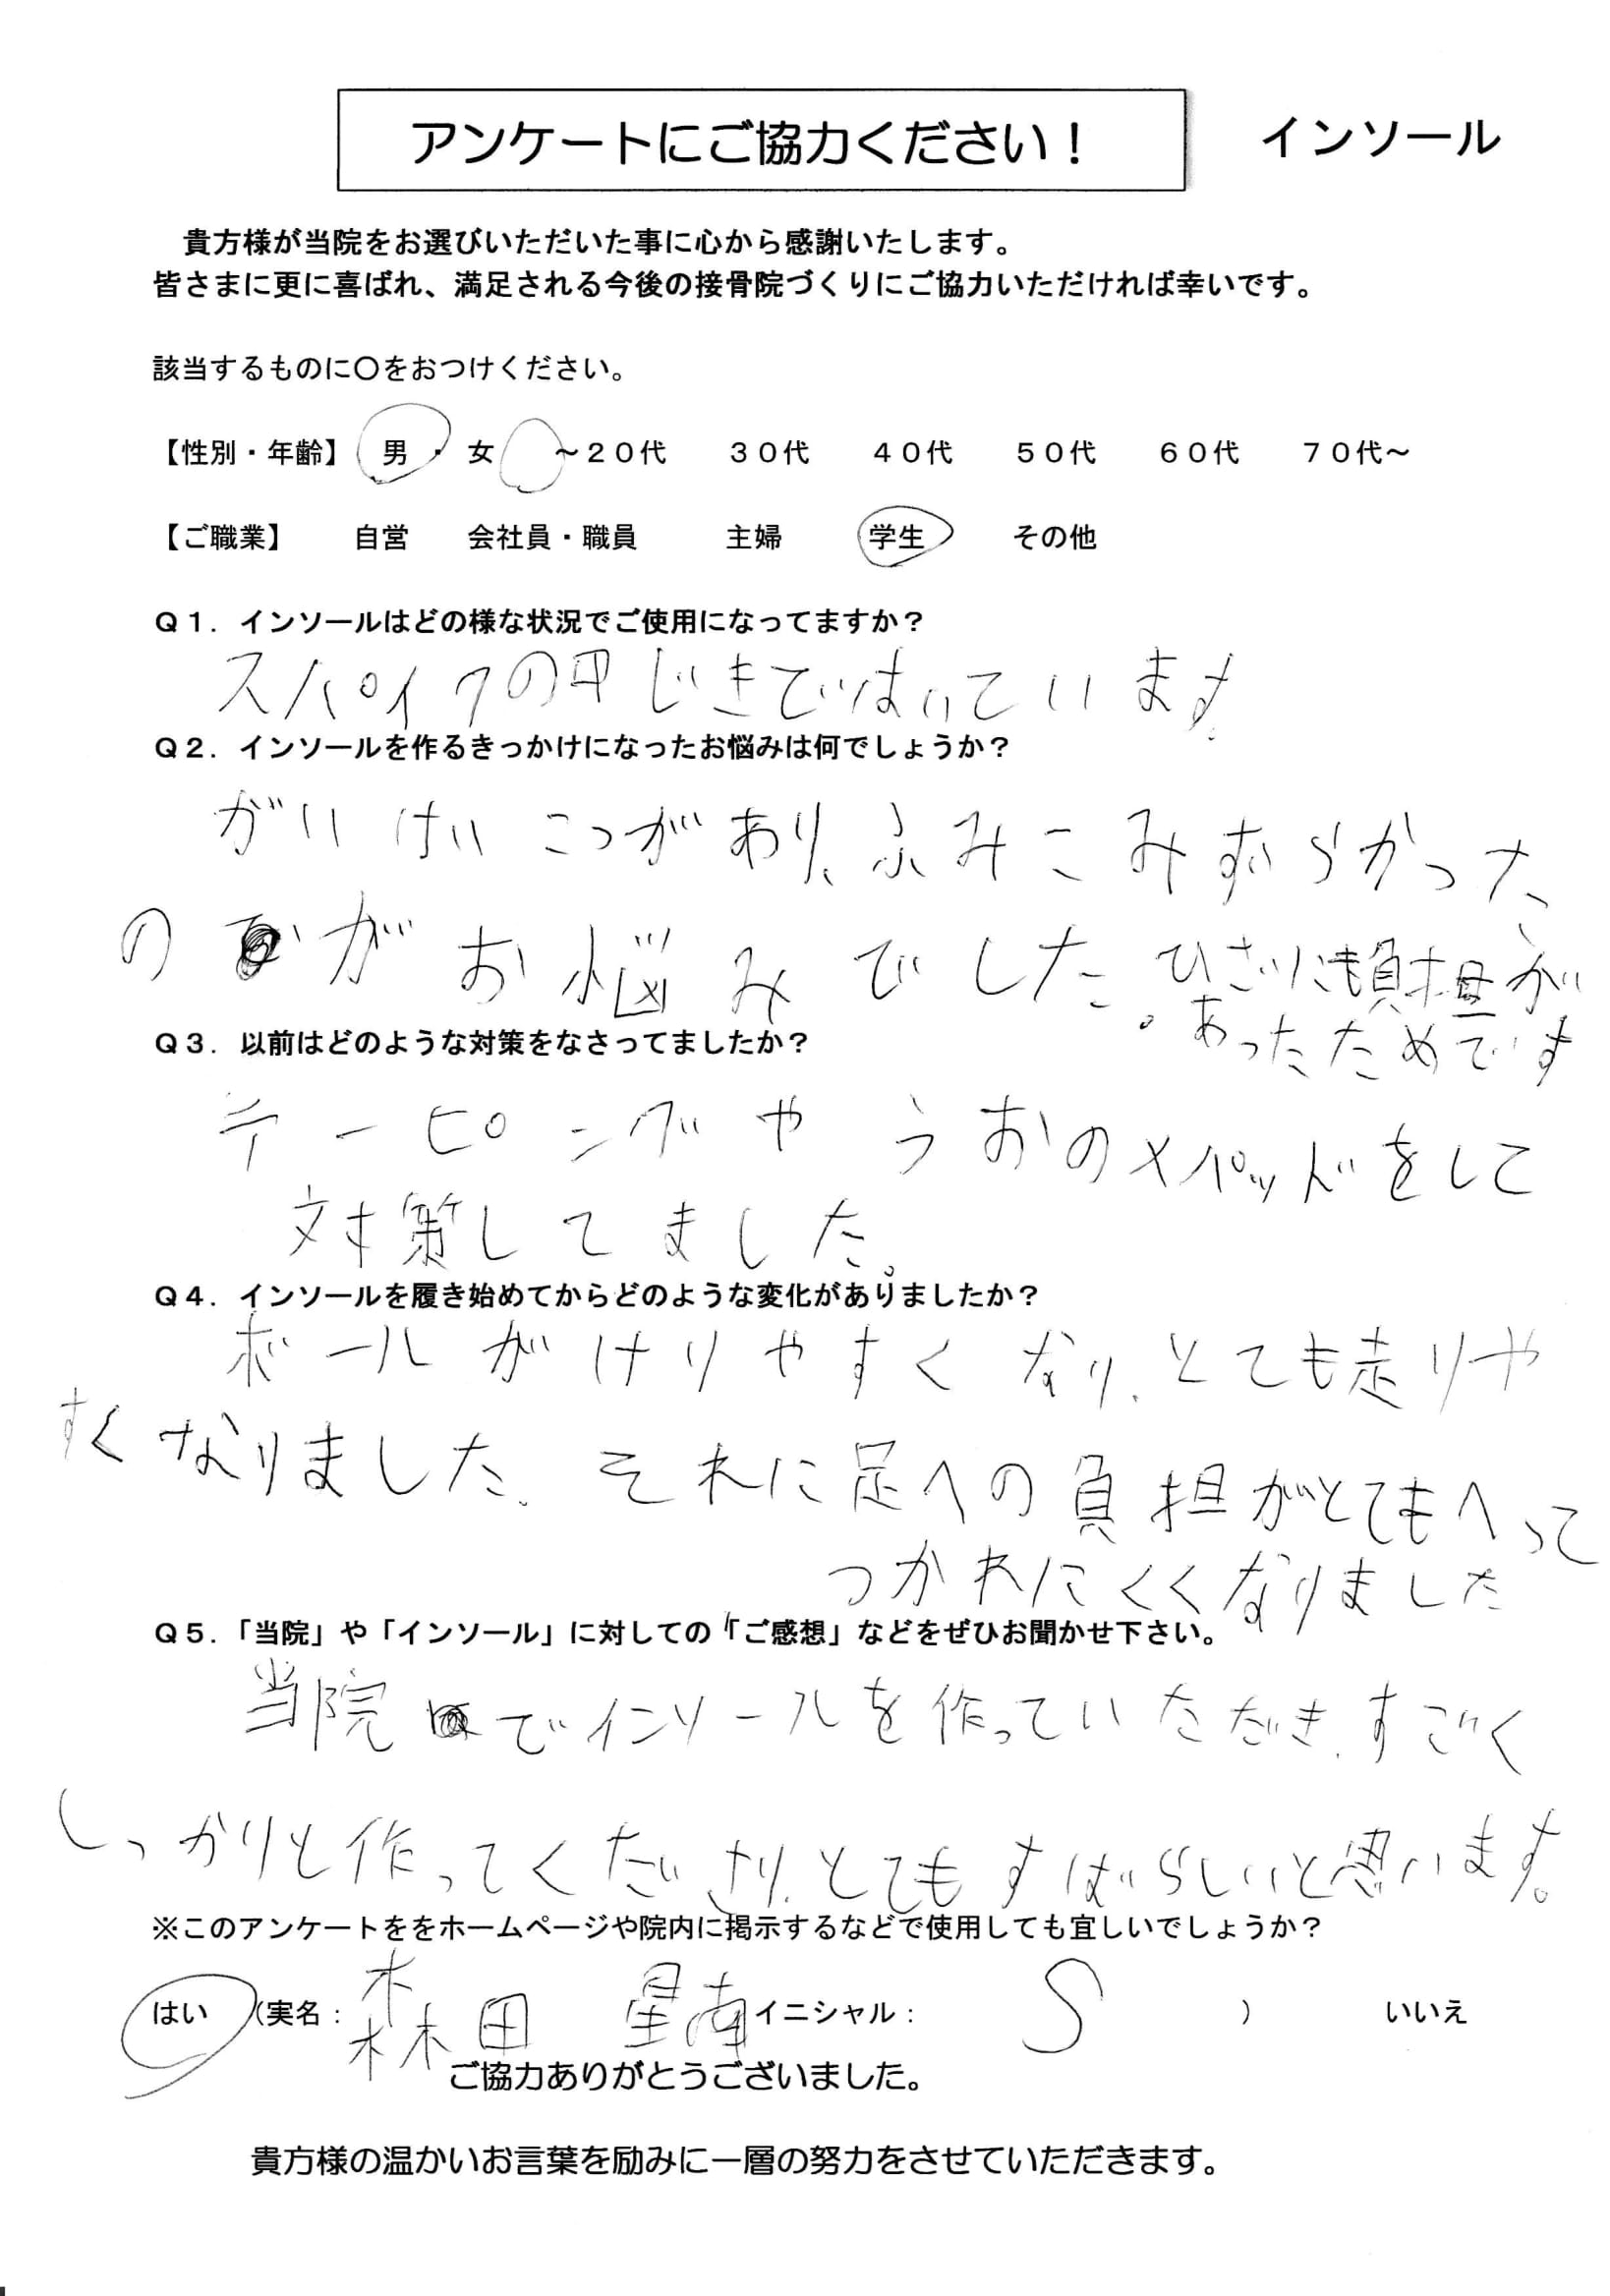 アンケートにご協力ください！ インソール
貴方様が当院をお選びいただいた事に心から感謝いたします。
皆さまに更に喜ばれ、満足される今後の接骨院づくりにご協力いただければ幸いです。
該当するものに〇をおつけください。
【性別・年齢】 男 ・ 女 ～２０代 ３０代 ４０代 ５０代 ６０代 ７０代～
【ご職業】 自営 会社員・職員 主婦 学生 その他
Ｑ１．インソールはどの様な状況でご使用になってますか？
スパイクの中じきではいています
Ｑ２．インソールを作るきっかけになったお悩みは何でしょうか？
がいけいこつがあり、ふみこみずらかった
のがお悩みでした。ひざにも負担が
あったためです
Ｑ３．以前はどのような対策をなさってましたか？
テーピングやうおのメパッドをして
対策してました。
Ｑ４．インソールを履き始めてからどのような変化がありましたか？
ボールがけりやすくなり、とても走りや
すくなりました。それに足への負担がとてもへって
つかれにくくなりました
Ｑ５．「当院」や「インソール」に対しての「ご感想」などをぜひお聞かせ下さい。
当院でインソールを作っていただき、すごく
しっかりと作ってくださり、とてもすばらしいと思います。
※このアンケートををホームページや院内に掲示するなどで使用しても宜しいでしょうか？
はい （実名： 森田 星南 イニシャル： S ） いいえ
ご協力ありがとうございました。
貴方様の温かいお言葉を励みに一層の努力をさせていただきます。